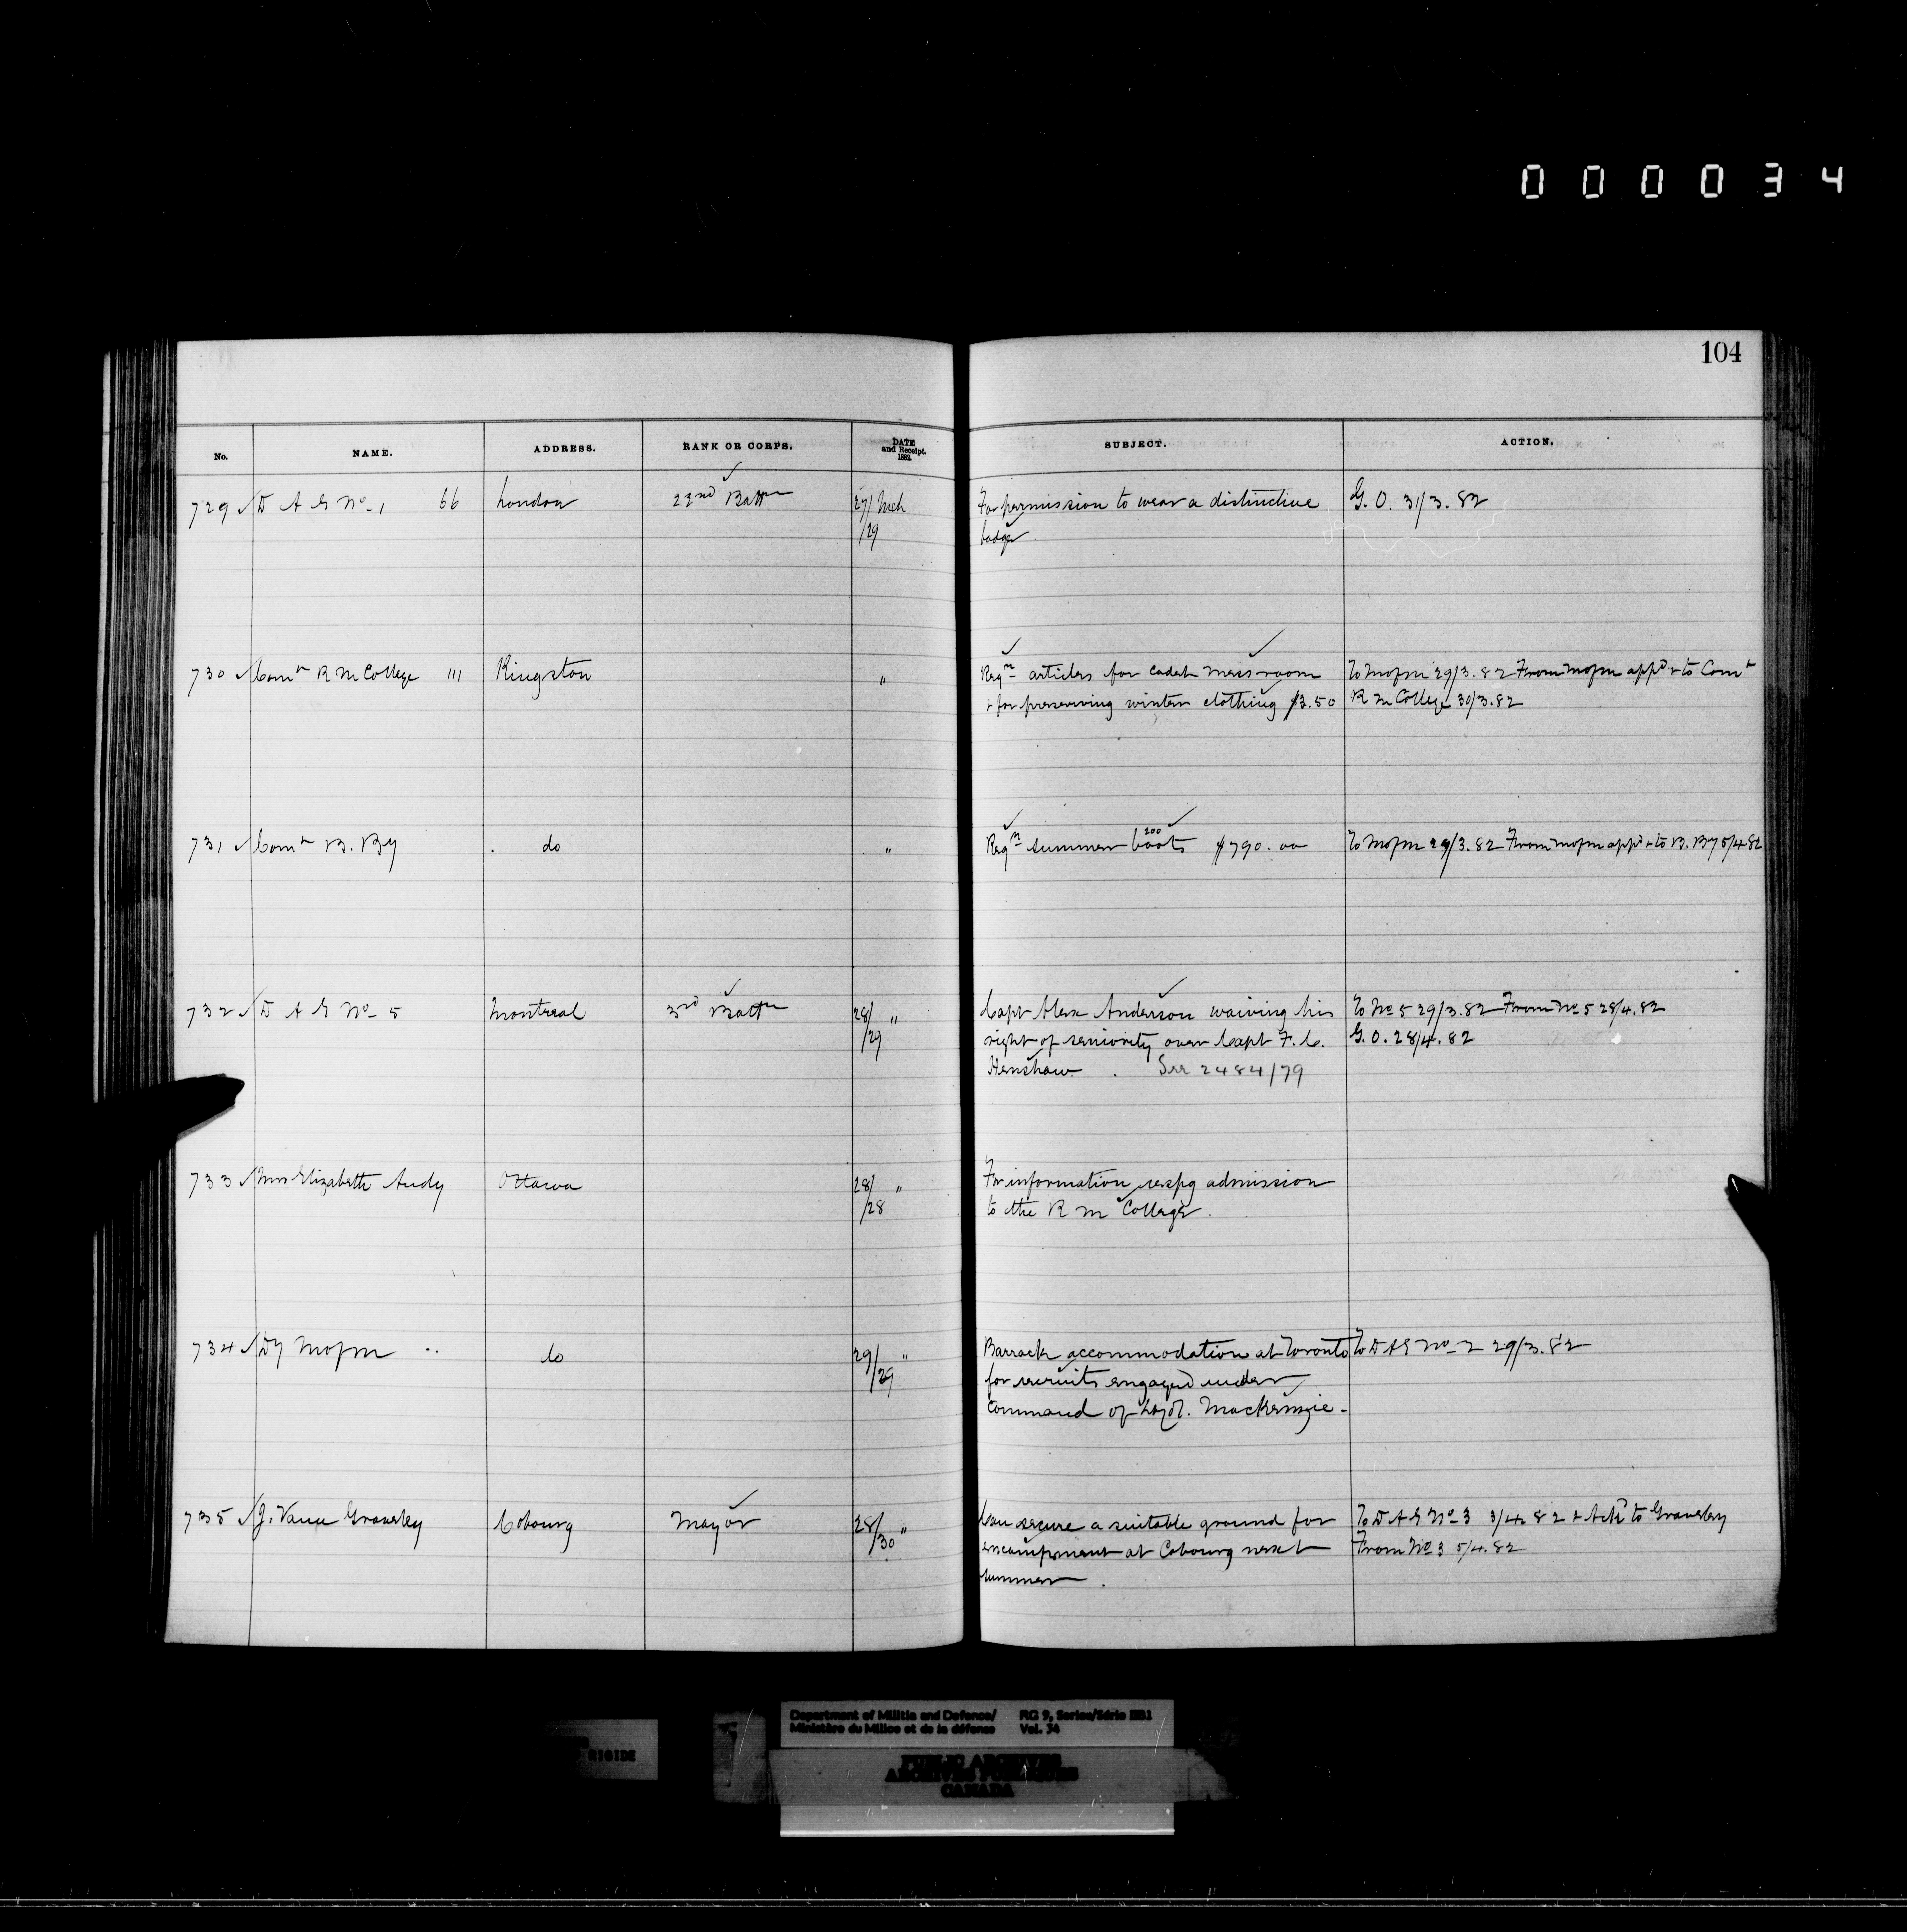 000034
104
No. NAME. ADDRESS. RANK OR CORPS. DATE and Receipt. 1882. SUBJECT. ACTION.
729 ✓ D A G No. 1 66 London 22nd Battn 27/ Mch For permission to wear a distinctive G. O. 31/3. 82
/29 badge
730 ✓ Comt R M College 111 Kingston " Reqn articles for cadet mess-room To Mofm 29/3. 82 From Mofm appd & to Comt
& for preserving winter clothing $3.50 R M College 30/3.82
731 ✓ Comt B. By do " Reqn summer boots 200 $790.00 To Mofm 29/3. 82 From Mofm appd & to B. By 5/4 82
732 ✓ D A G No. 5 Montreal 3rd Battn 28/ " Capt Alex Anderson waiving his To No 5 29/3. 82 From No 5 28/4. 82
/29 right of seniority over Capt F. C. G. O. 28/4. 82
Henshaw. See 2484/79
733 ✓ Mrs Elizabeth Ottawa 28/ " For information respg admission
/28 to the R M College.
734 ✓ Dy Mofm do 29/ " Barrack accommodation at Toronto To D A G No. 2 29/3. 82
/29 for recruits engaged under
command of MacKenzie -
735 ✓ J. Vance Graveley Cobourg Mayor 28/ " Can secure a suitable ground for To D A G No. 3 3/4 82 & Ackd to Graveley
/30 encampment at Cobourg next From No 3 5/4. 82
summer.
Department of Militia and Defence/ RG 9, Series/Série IIB1
Ministère du Milice et de la défense Vol. 34
RIGIDE
PUBLIC ARCHIVES
ARCHIVES PUBLIQUES
CANADA